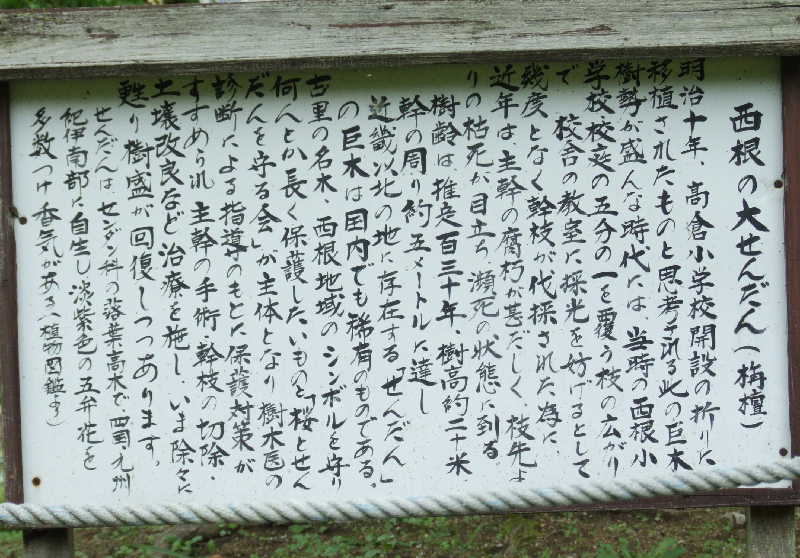 西根の大せんだん(栴檀)
明治十年、高倉小学校開設の折りに
移植されたものと思考される此の巨木
樹勢が盛んな時代には、当時の西根小
学校校庭の五分の一を覆う枝の広がり
で 校舎の教室に採光を妨げるとして
幾度となく幹枝が伐採された為に
近年は、主幹の腐朽が甚だしく、枝先よ
りの枯死が目立ち 瀕死の状態に到る。
樹齢は、推定百三十年、樹高約二十米、
幹の周り約五メートルに達し
近畿以北の地に存在する「せんだん」
の巨木は国内でも稀有のものである。
古里の名木、西根地域のシンボルを守り
何んとか長く保護したいものと「桜とせん
だんを守る会」が主体となり 樹木医の
診断による指導のもとに保護対策が
すすめられ 主幹の手術、幹枝の切除、
土壌改良など治療を施し、いま除々に
甦り樹盛が回復しつつあります。
せんだんは、センダン科の落葉高木で、四国、九州
紀伊南部に自生し 淡紫色の五弁花を
多数つけ 香気がある(植物図鑑より)